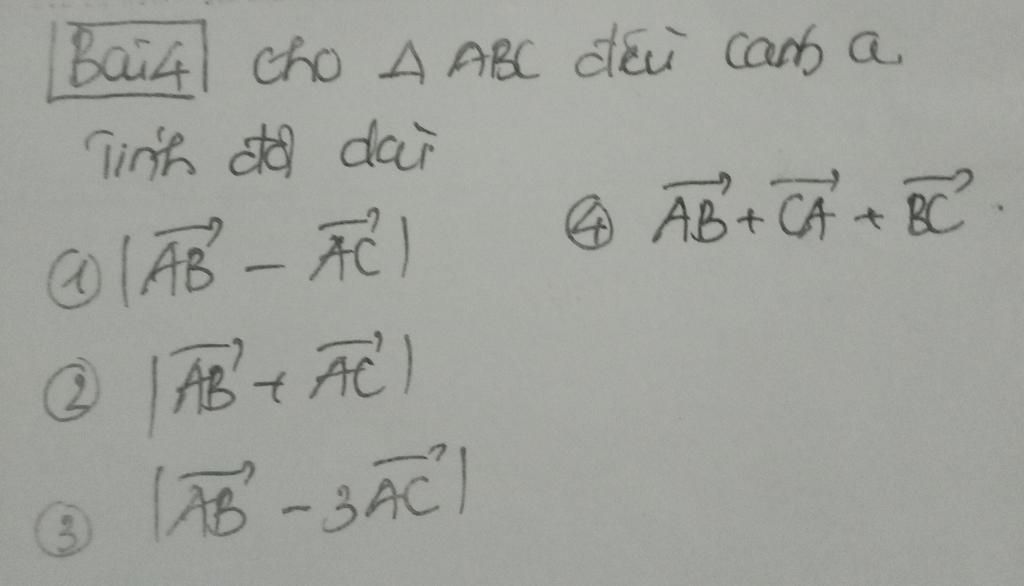 Bài 4 cho Δ ABC đều cạnh a.
Tính độ dài
① |\overrightarrow{AB} - \overrightarrow{AC}|
② |\overrightarrow{AB} + \overrightarrow{AC}|
③ |\overrightarrow{AB} - 3\overrightarrow{AC}|
④ \overrightarrow{AB} + \overrightarrow{CA} + \overrightarrow{BC}.